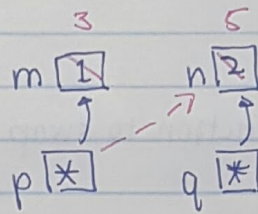 3 5
m 1 n 2
p * q *